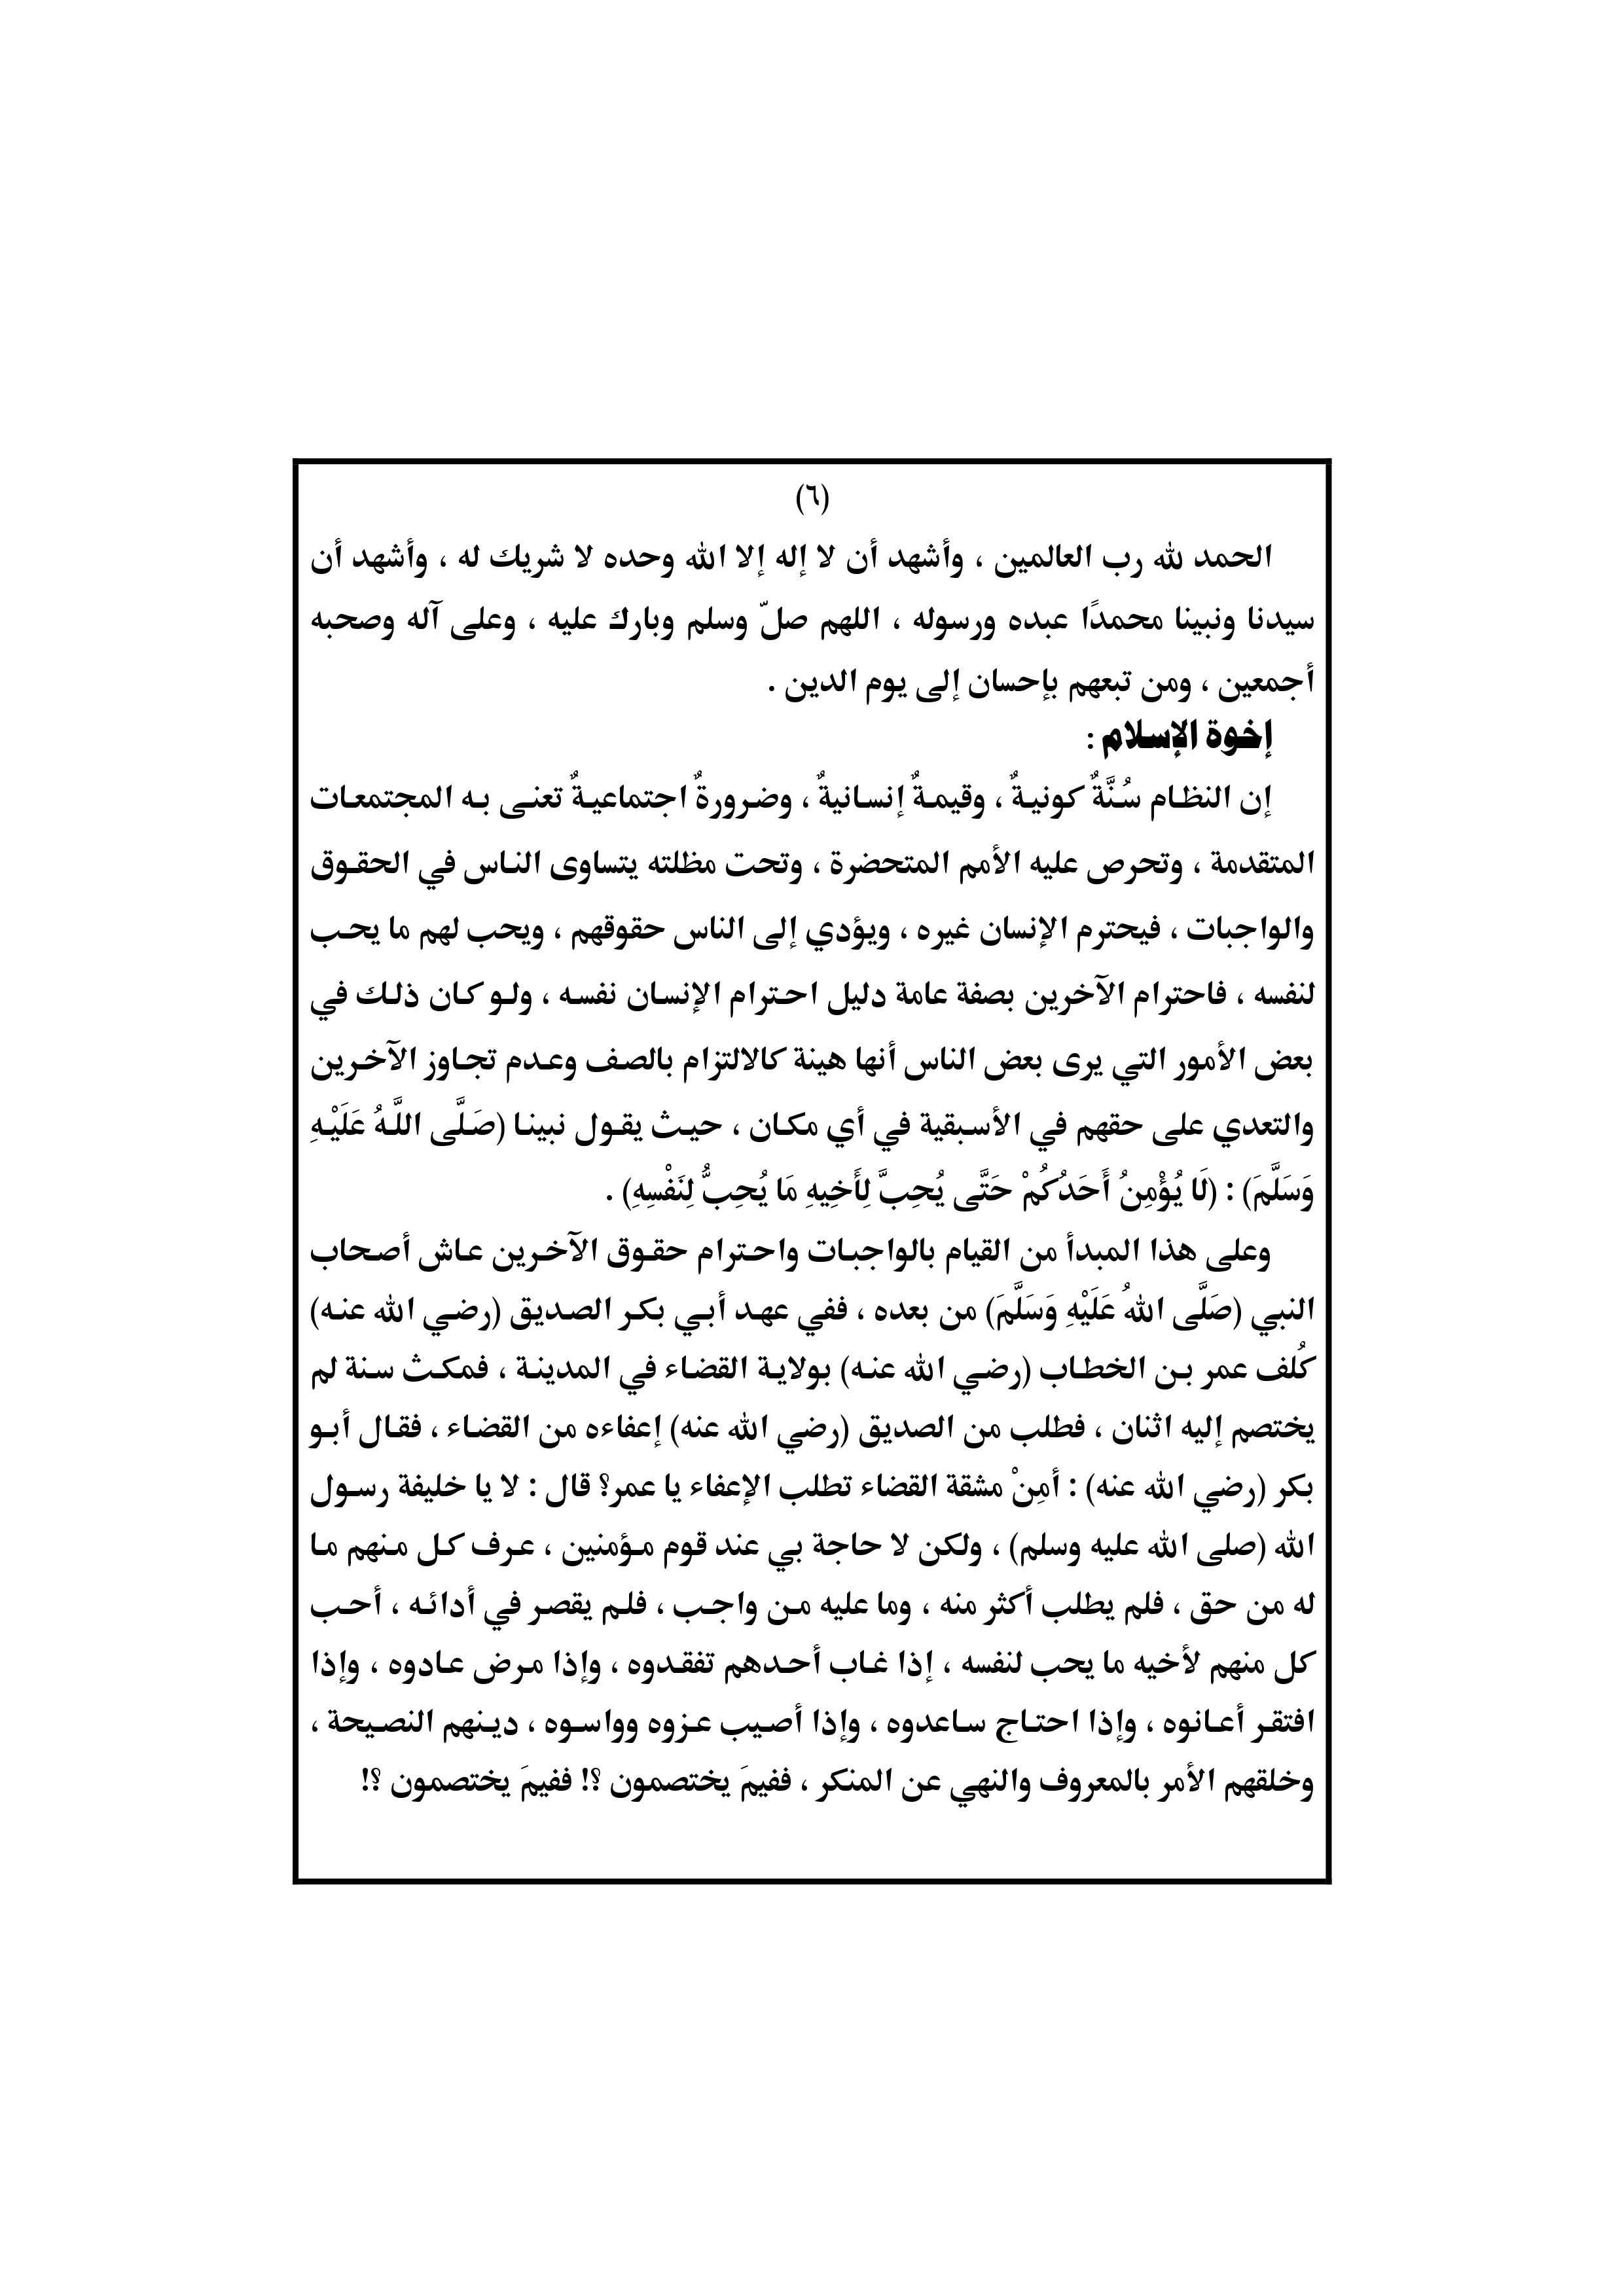 (٦)
الحمد لله رب العالمين ، وأشهد أن لا إله إلا الله وحده لا شريك له ، وأشهد أن
سيدنا ونبينا محمدًا عبده ورسوله ، اللهم صلّ وسلم وبارك عليه ، وعلى آله وصحبه
أجمعين ، ومن تبعهم بإحسان إلى يوم الدين .
إخوة الإسلام :
إن النظام سُنَّةٌ كونيةٌ ، وقيمةٌ إنسانيةٌ ، وضرورةٌ اجتماعيةٌ تعنى به المجتمعات
المتقدمة ، وتحرص عليه الأمم المتحضرة ، وتحت مظلته يتساوى الناس في الحقوق
والواجبات ، فيحترم الإنسان غيره ، ويؤدي إلى الناس حقوقهم ، ويحب لهم ما يحب
لنفسه ، فاحترام الآخرين بصفة عامة دليل احترام الإنسان نفسه ، ولو كان ذلك في
بعض الأمور التي يرى بعض الناس أنها هينة كالالتزام بالصف وعدم تجاوز الآخرين
والتعدي على حقهم في الأسبقية في أي مكان ، حيث يقول نبينا (صَلَّى اللَّهُ عَلَيْهِ
وَسَلَّمَ) : (لَا يُؤْمِنُ أَحَدُكُمْ حَتَّى يُحِبَّ لِأَخِيهِ مَا يُحِبُّ لِنَفْسِهِ) .
وعلى هذا المبدأ من القيام بالواجبات واحترام حقوق الآخرين عاش أصحاب
النبي (صَلَّى اللهُ عَلَيْهِ وَسَلَّمَ) من بعده ، ففي عهد أبي بكر الصديق (رضي الله عنه)
كُلف عمر بن الخطاب (رضي الله عنه) بولاية القضاء في المدينة ، فمكث سنة لم
يختصم إليه اثنان ، فطلب من الصديق (رضي الله عنه) إعفاءه من القضاء ، فقال أبو
بكر (رضي الله عنه) : أمِنْ مشقة القضاء تطلب الإعفاء يا عمر؟ قال : لا يا خليفة رسول
الله (صلى الله عليه وسلم) ، ولكن لا حاجة بي عند قوم مؤمنين ، عرف كل منهم ما
له من حق ، فلم يطلب أكثر منه ، وما عليه من واجب ، فلم يقصر في أدائه ، أحب
كل منهم لأخيه ما يحب لنفسه ، إذا غاب أحدهم تفقدوه ، وإذا مرض عادوه ، وإذا
افتقر أعانوه ، وإذا احتاج ساعدوه ، وإذا أصيب عزوه وواسوه ، دينهم النصيحة ،
وخلقهم الأمر بالمعروف والنهي عن المنكر ، ففيمَ يختصمون ؟! ففيمَ يختصمون ؟!